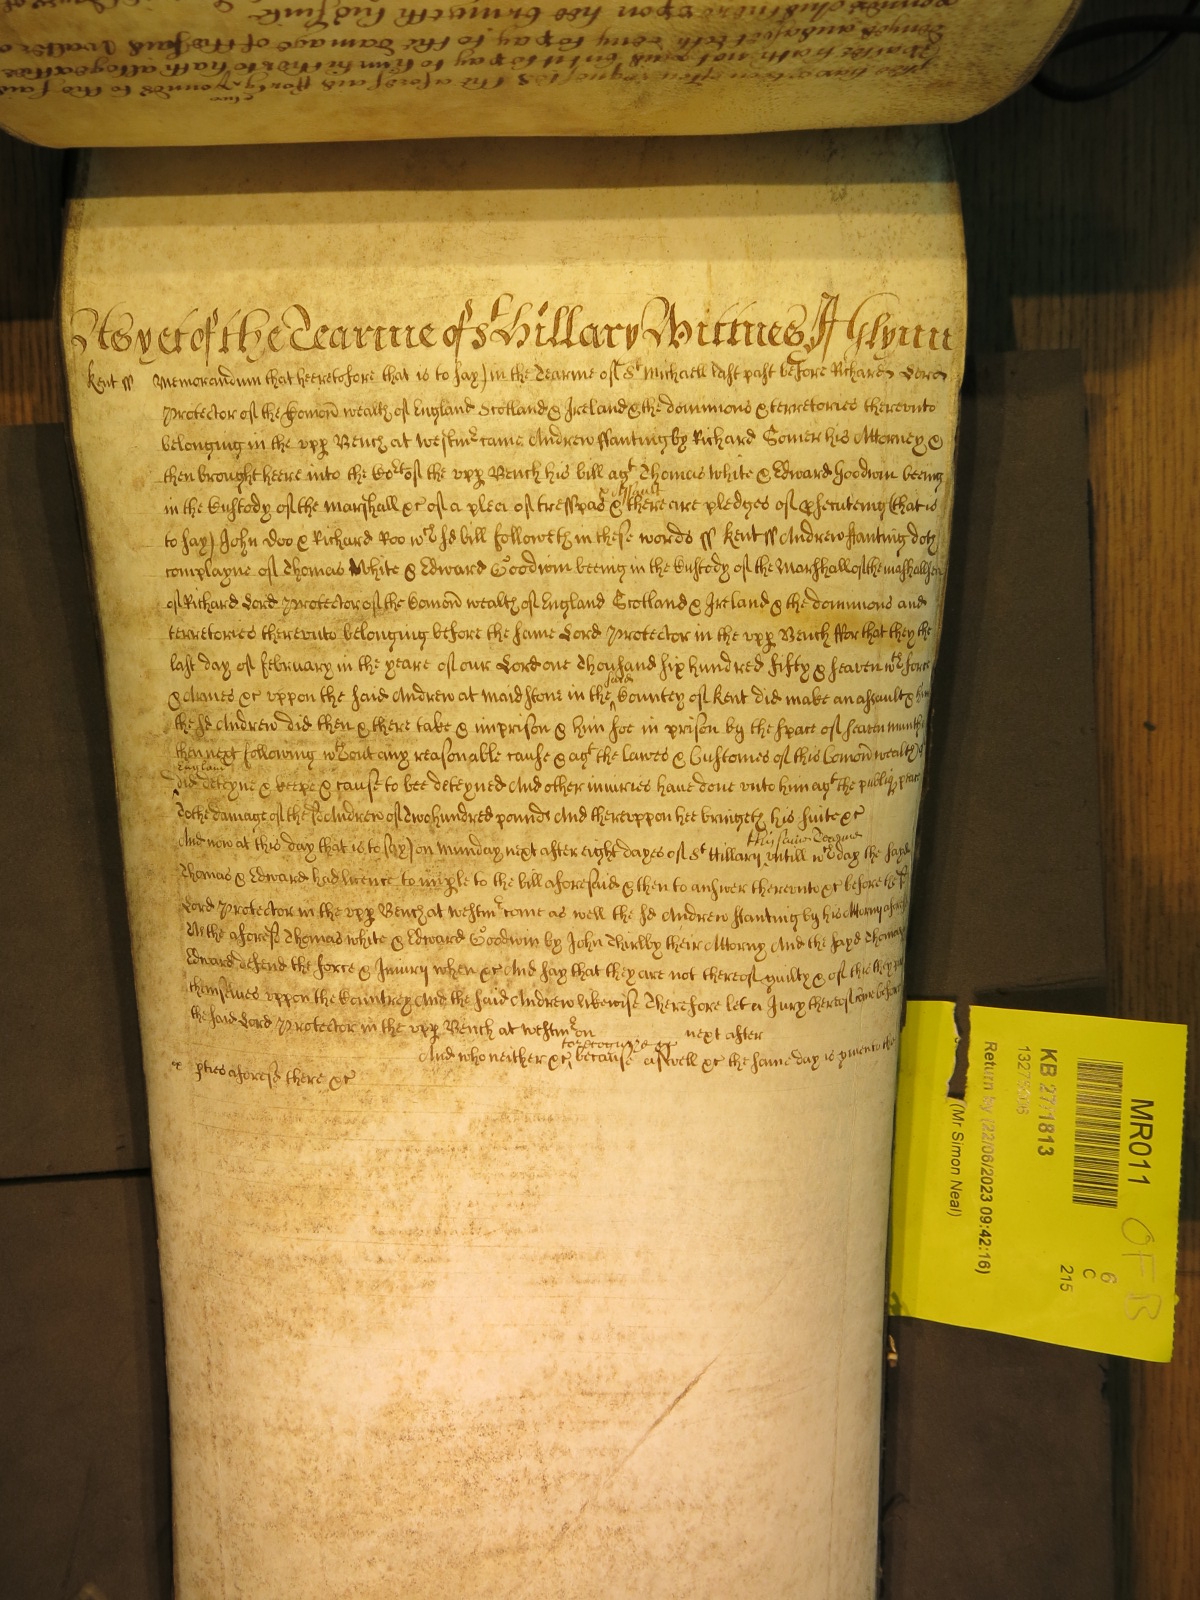 As yet of the Tearme of St Hillary Wittnes J Glynn
Kent ss Memorandum that heeretofore that is to say) in the Tearme of St Michaell last past before Richard Lord
Protector of the Comon wealth of England Scotland & Ireland & the dominions & terretories therevnto
belonging in the vpp Bench at Westmr came Andrew Hanting by Richard Somer his Attorney &
then brought heere into the Cort of the vpp Bench his bill agt Thomas White & Edward Goodwin beeing
in the Custody of the Marshall &c of a plea of tresspas & Assault there are pledges of prsecuteing (that is
to say) John Doo & Richard Roo wch sd bill followeth in these words ss Kent ss Andrew Hanting doth
complayne of Thomas White & Edward Goodwin beeing in the Custody of the Marshall of the mashallsen
of Richard Lord Protector of the Comon wealth of England Scotland & Ireland & the dominions and
terretories therevnto belonging before the same Lord Protector in the vpp Bench ffor that they the
last day of February in the yeare of our Lord one Thousand six hundred fifty & seaven wth force
& Armes &c vppon the said Andrew at Maidstone in the said Countey of Kent did make an assault & him
the sd Andrew did then & there take & imprison & him soe in prison by the space of seaven munths
then next following wthout any reasonable cause & agt the lawes & Customes of this Comon wealth of
England did deteyne & keepe & cause to bee deteyned And other iniuries have done vnto him agt the publiq peace
To the damage of the sd Andrew of Two hundred pounds And therevppon hee bringeth his suite &c
And now at this day that is to say) on Munday next after eight dayes of St Hillary this same Tearme vntill wch day the sayd
Thomas & Edward had licence to imple to the bill aforesaid & then to answer therevnto &c before the sd
Lord Protector in the vpp Bench at Westmr come as well the sd Andrew Hanting by his Attorny aforesd
As the aforesd Thomas White & Edward Goodwin by John Thirlby their Attorny And the sayd Thomas
Edward defend the force & Iniury when &c And say that they are not thereof guilty & of this they put
themselves vppon the Countrey And the said Andrew likewise Therefore let a Jury thereof come before
the said Lord Protector in the vpp Bench at Westmr on next after
And who neither &c to recognize &c because aswell &c the same day is given to the
pties aforesd there &c
MR011
KB 27/1813
Return by (22/06/2023 09:42:16)
(Mr Simon Neal)
6
C
215
OFB